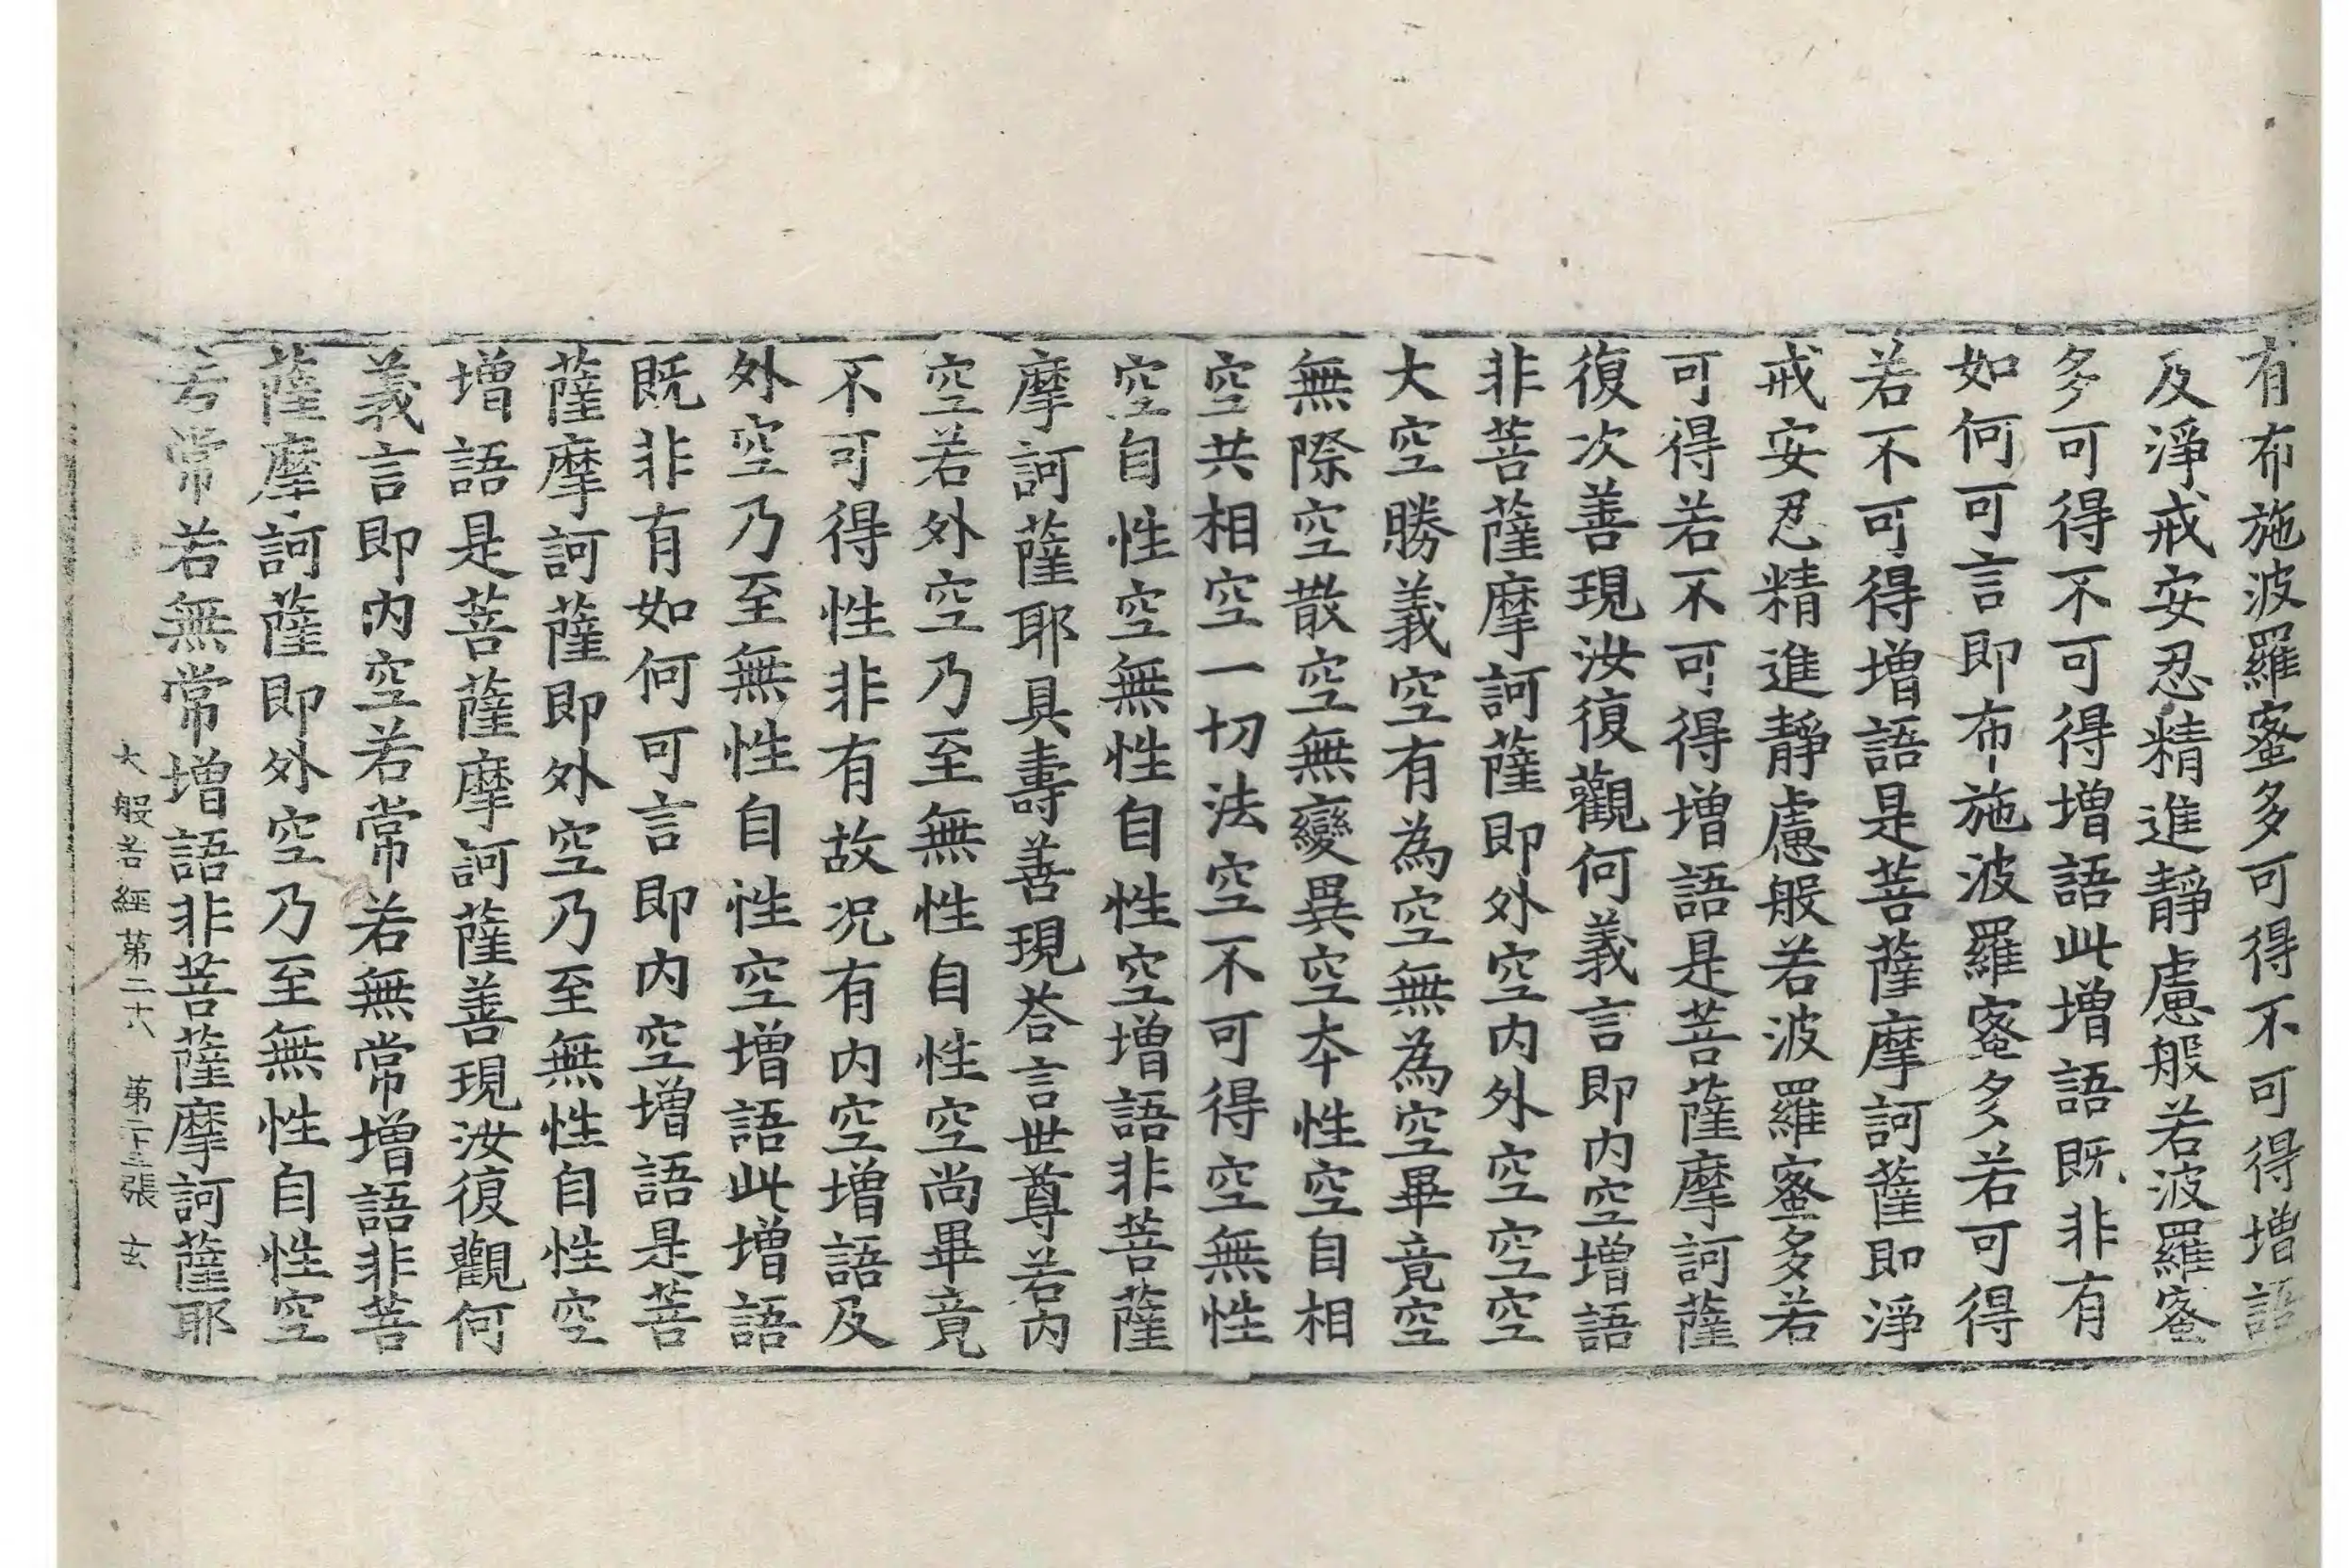 有布施波羅蜜多可得不可得增語
及淨戒安忍精進靜慮般若波羅蜜
多可得不可得增語此增語既非有
如何可言即布施波羅蜜多若可得
若不可得增語是菩薩摩訶薩即淨
戒安忍精進靜慮般若波羅蜜多若
可得若不可得增語是菩薩摩訶薩
復次善現汝復觀何義言即内空增語
非菩薩摩訶薩即外空内外空空空
大空勝義空有為空無為空畢竟空
無際空散空無變異空本性空自相
空共相空一切法空不可得空無性
空自性空無性自性空增語非菩薩
摩訶薩耶具壽善現荅言世尊若内
空若外空乃至無性自性空尚畢竟
不可得性非有故况有内空增語及
外空乃至無性自性空增語此增語
既非有如何可言即内空增語是菩
薩摩訶薩即外空乃至無性自性空
增語是菩薩摩訶薩善現汝復觀何
義言即内空若常若無常增語非菩
薩摩訶薩即外空乃至無性自性空
若常若無常增語非菩薩摩訶薩耶
大般若經第二十六 第二十三張 玄